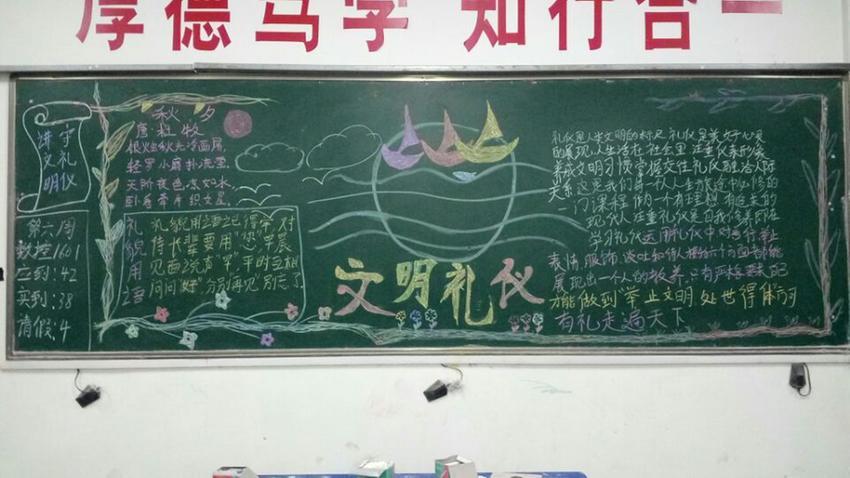 厚德马学 知行合一
讲文明
守礼仪
第六周
数控1601
应到:42
实到:38
请假:4
秋夕
唐 杜牧
银烛秋光冷画屏,
轻罗小扇扑流萤。
天阶夜色凉如水,
卧看牵牛织女星。
礼貌用语
礼貌用语记得牢,对
待长辈要用“您”,早晨
见面说声“早”,平时互相
问问“好”,分别再见别忘了
文明礼仪
礼仪是人类文明的标尺,礼仪是美好心灵
的展现,人生活在社会里,注重仪表形象
养成文明习惯,掌握交往礼仪,融洽人际
关系,这是我们每一代人人生旅途中必修的
一门课程,做为一个有理想,有追求的
现代人,注重礼仪是自我修养,所在
学习礼仪,运用礼仪中对言行举止
表情,服饰,谈吐和待人接物六个面都能
展现出一个人的教养,只有严格要求自己
才能做到“举止文明,处世得体”的
有礼走遍天下